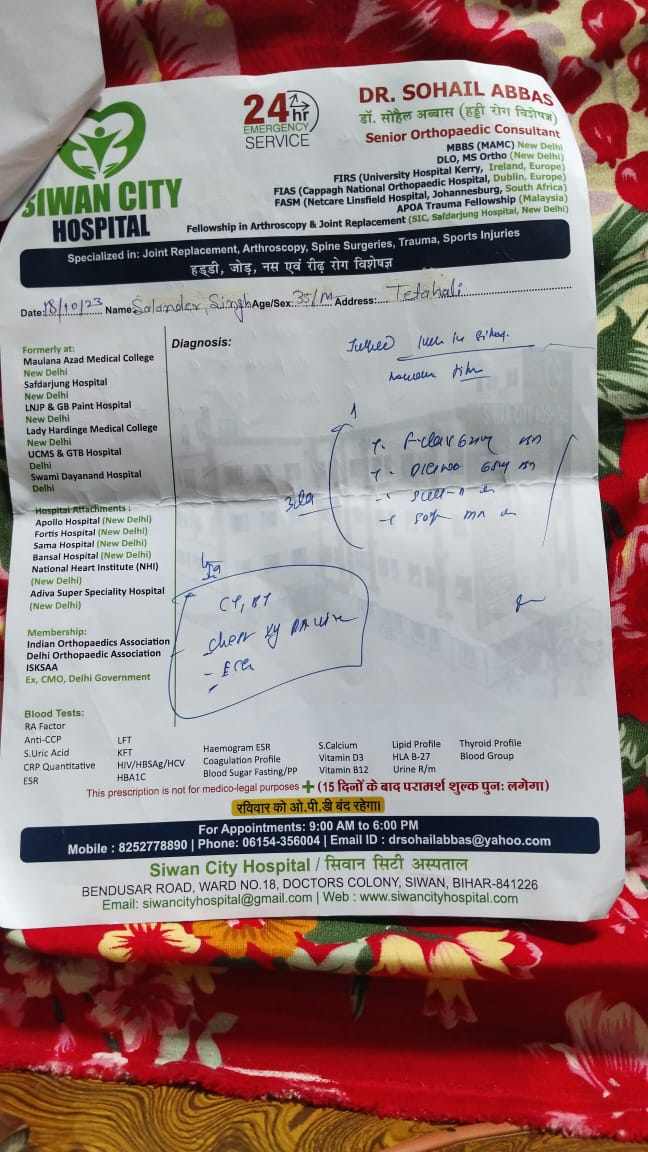 SIWAN CITY
HOSPITAL
24 hr
EMERGENCY
SERVICE
DR. SOHAIL ABBAS
डॉ. सोहैल अब्बास (हड्डी रोग विशेषज्ञ)
Senior Orthopaedic Consultant
MBBS (MAMC) New Delhi
DLO, MS Ortho (New Delhi)
FIRS (University Hospital Kerry, Ireland, Europe)
FIAS (Cappagh National Orthopaedic Hospital, Dublin, Europe)
FASM (Netcare Linsfield Hospital, Johannesburg, South Africa)
APOA Trauma Fellowship (Malaysia)
Fellowship in Arthroscopy & Joint Replacement (SIC, Safdarjung Hospital, New Delhi)
Specialized in: Joint Replacement, Arthroscopy, Spine Surgeries, Trauma, Sports Injuries
हड्डी, जोड़, नस एवं रीढ़ रोग विशेषज्ञ
Date: 18/10/23 Name: Singh Age/Sex: 35/M Address:
Diagnosis:
Formerly at:
Maulana Azad Medical College
New Delhi
Safdarjung Hospital
New Delhi
LNJP & GB Paint Hospital
New Delhi
Lady Hardinge Medical College
New Delhi
UCMS & GTB Hospital
Delhi
Swami Dayanand Hospital
Delhi
Hospital Attachments :
Apollo Hospital (New Delhi)
Fortis Hospital (New Delhi)
Sama Hospital (New Delhi)
Bansal Hospital (New Delhi)
National Heart Institute (NHI)
(New Delhi)
Adiva Super Speciality Hospital
(New Delhi)
Membership:
Indian Orthopaedics Association
Delhi Orthopaedic Association
ISKSAA
Ex, CMO, Delhi Government
CT, BT
Chest
Blood Tests:
RA Factor
Anti-CCP
S.Uric Acid
CRP Quantitative
ESR
LFT
KFT
HIV/HBSAg/HCV
HBA1C
Haemogram ESR
Coagulation Profile
Blood Sugar Fasting/PP
S.Calcium
Vitamin D3
Vitamin B12
Lipid Profile
HLA B-27
Urine R/m
Thyroid Profile
Blood Group
This prescription is not for medico-legal purposes + (15 दिनों के बाद परामर्श शुल्क पुनः लगेगा)
रविवार को ओ.पी.डी बंद रहेगा।
For Appointments: 9:00 AM to 6:00 PM
Mobile : 8252778890 | Phone: 06154-356004 | Email ID : drsohailabbas@yahoo.com
Siwan City Hospital / सिवान सिटी अस्पताल
BENDUSAR ROAD, WARD NO.18, DOCTORS COLONY, SIWAN, BIHAR-841226
Email: siwancityhospital@gmail.com | Web : www.siwancityhospital.com